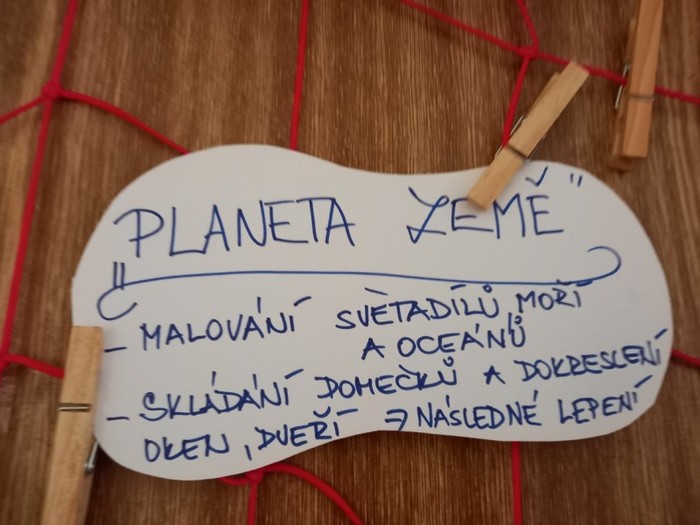 "PLANETA ZEMĚ"
- MALOVÁNÍ SVĚTADÍLŮ, MOŘÍ
A OCEÁNŮ
- SKLÁDÁNÍ DOMEČKŮ A DOKRESLENÍ
OKEN, DVEŘÍ → NÁSLEDNÉ LEPENÍ